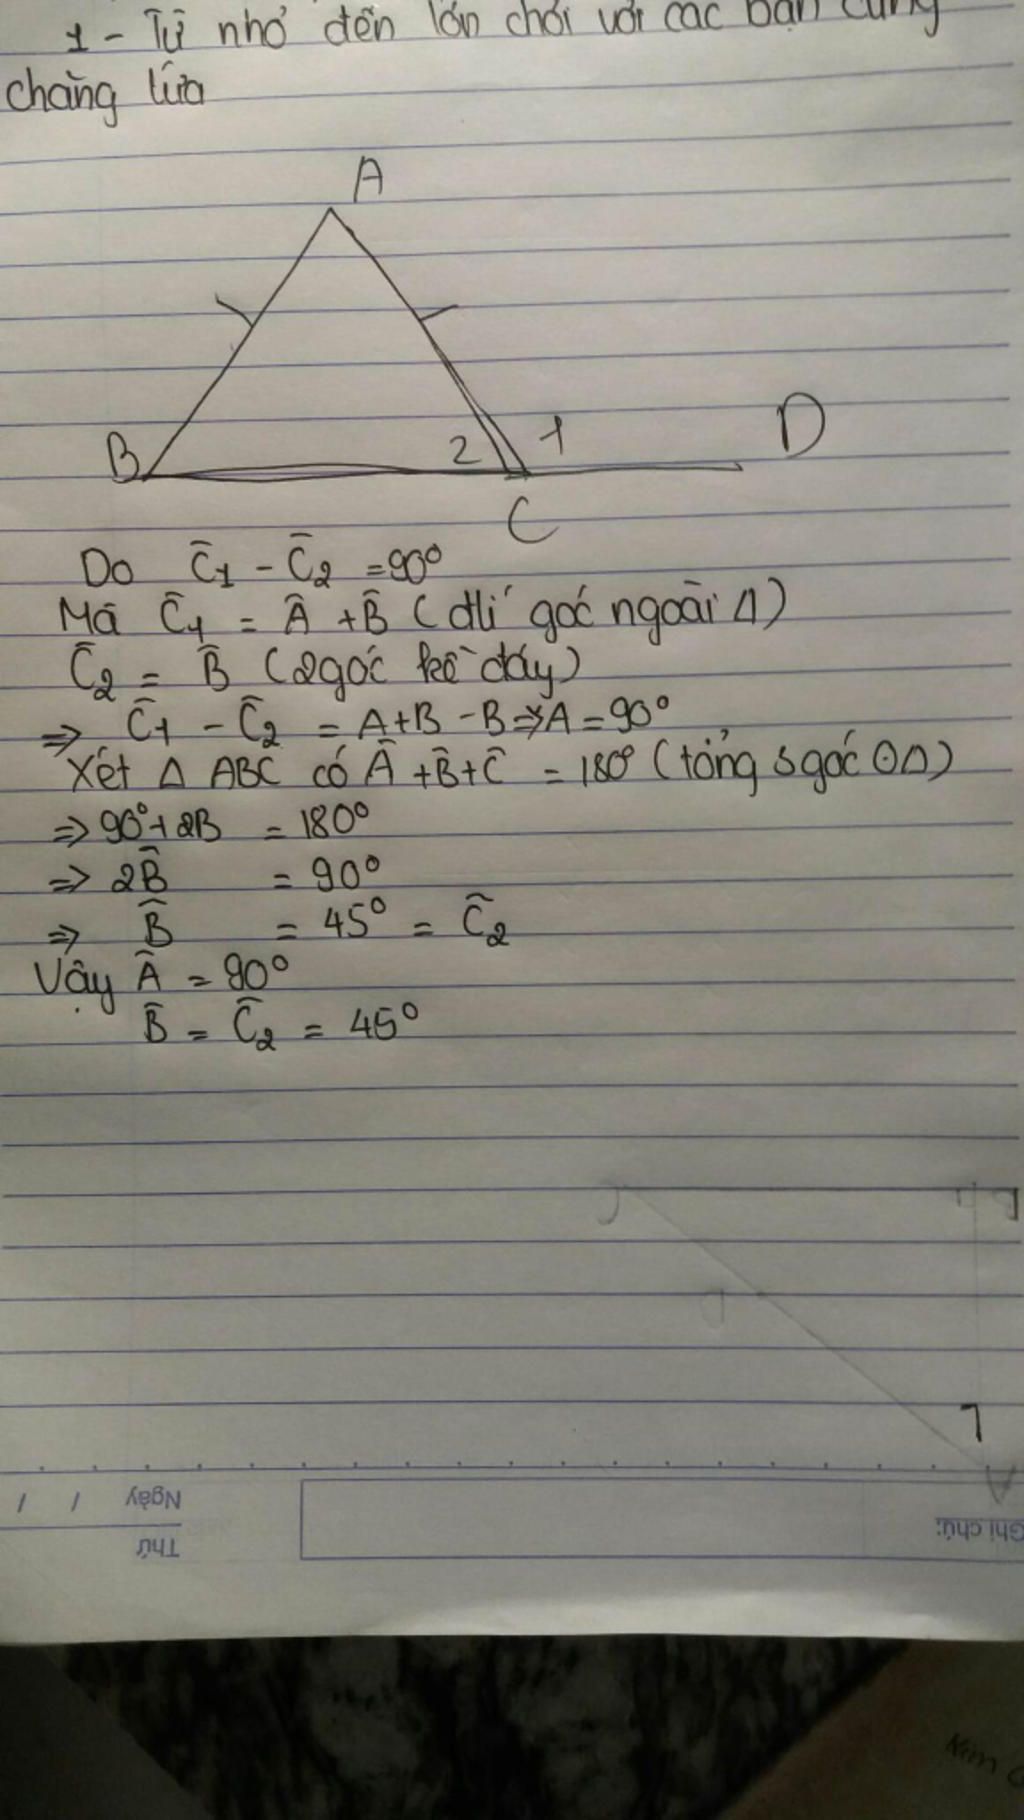 1 - Từ nhỏ đến lớn chơi với các bạn cùng
chang lứa
A
B
2
1
D
C
Do Ĉ1 - Ĉ2 = 90°
Mà Ĉ1 = Â + B̂ (đlí góc ngoài Δ)
Ĉ2 = B̂ (2 góc kề đáy)
=> Ĉ1 - Ĉ2 = A+B - B => A = 90°
Xét Δ ABC có Â + B̂ + Ĉ = 180° (tổng 3 góc Δ)
=> 90° + 2B = 180°
=> 2B̂ = 90°
=> B̂ = 45° = Ĉ2
Vậy Â = 90°
B̂ = Ĉ2 = 45°
Ghi chú:
Thứ
Ngày / /